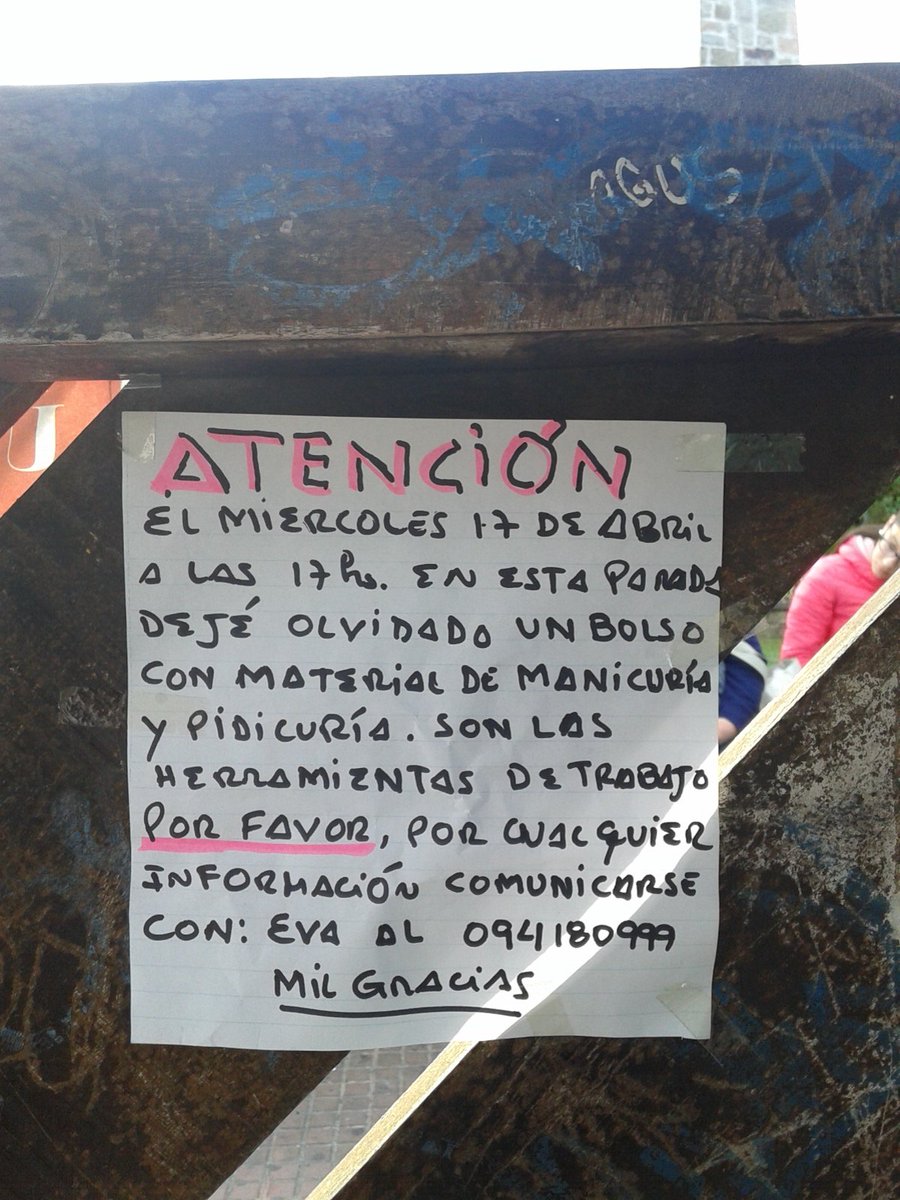 AGUS
J
ATENCIÓN
EL MIERCOLES 17 DE ABRIL
A LAS 17 hs. EN ESTA PARADA
DEJÉ OLVIDADO UN BOLSO
CON MATERIAL DE MANICURÍA
Y PIDICURÍA. SON LAS
HERRAMIENTAS DE TRABAJO
POR FAVOR, POR CUALQUIER
INFORMACIÓN COMUNICARSE
CON: EVA AL 094180999
MIL GRACIAS